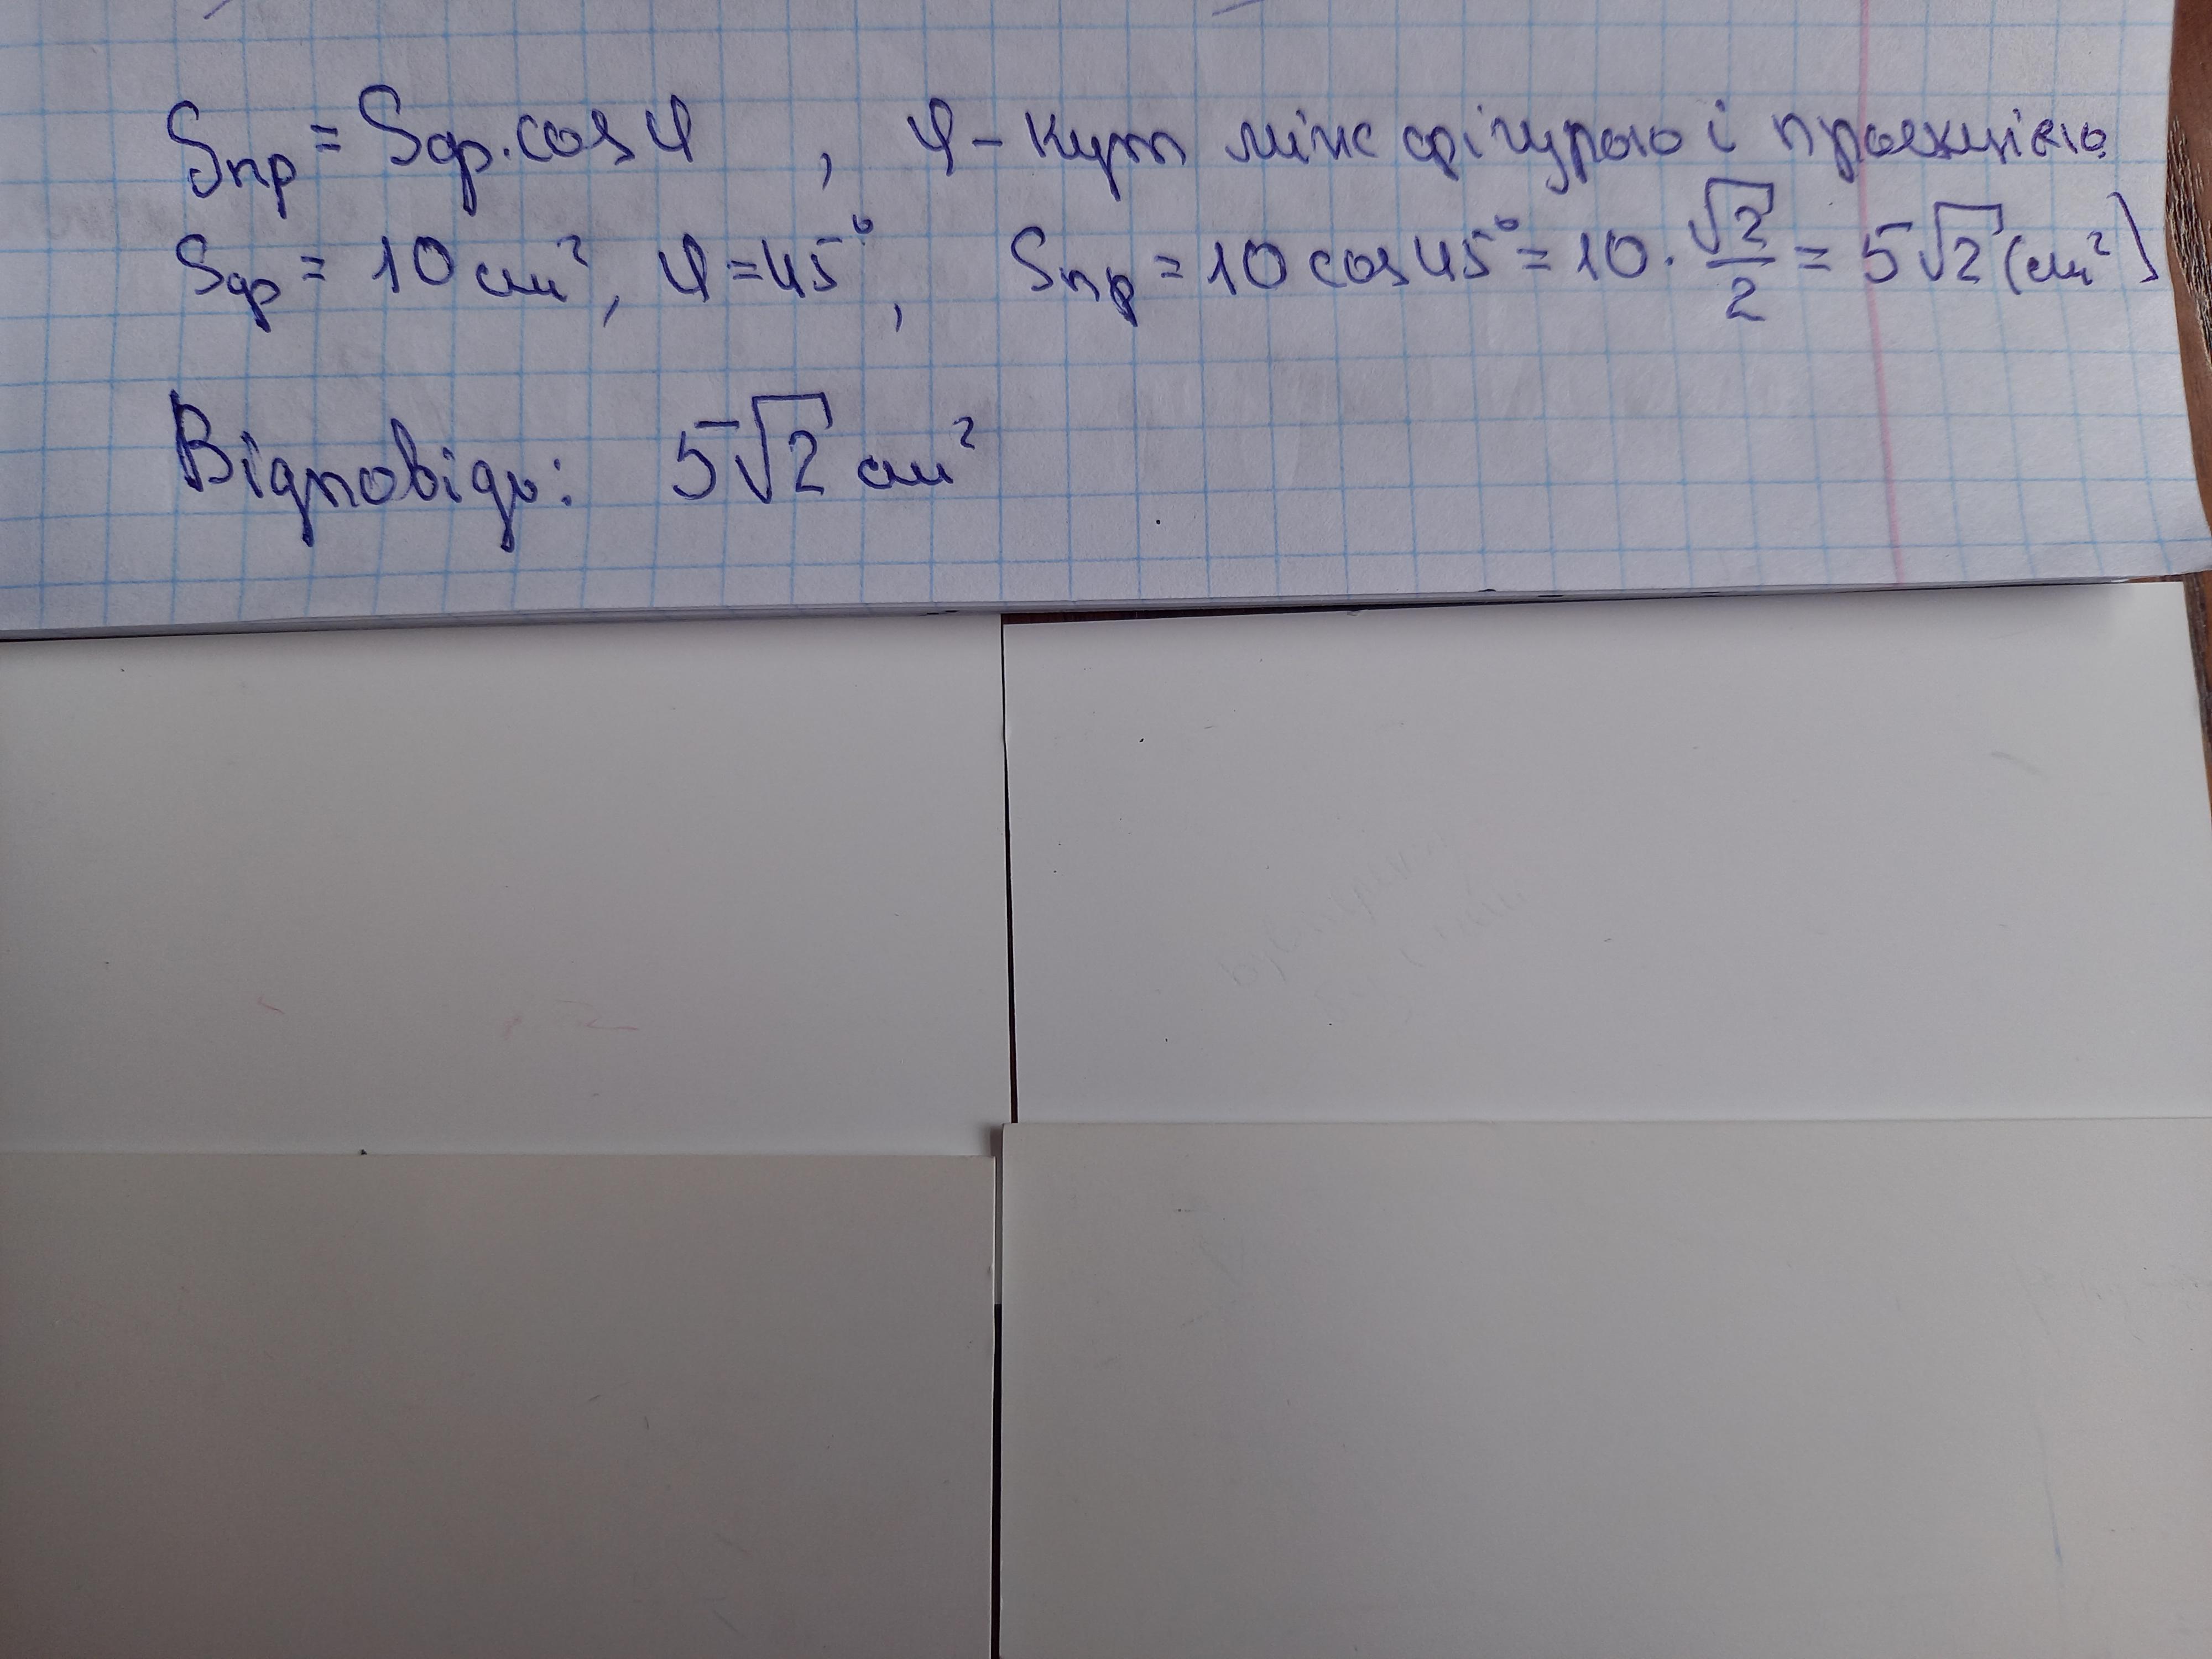 Sпр = Sф · cos φ , φ – кут між фігурою і проекцією
Sф = 10 см², φ = 45°, Sпр = 10 cos 45° = 10 · √2/2 = 5√2 (см²)
Відповідь: 5√2 см²